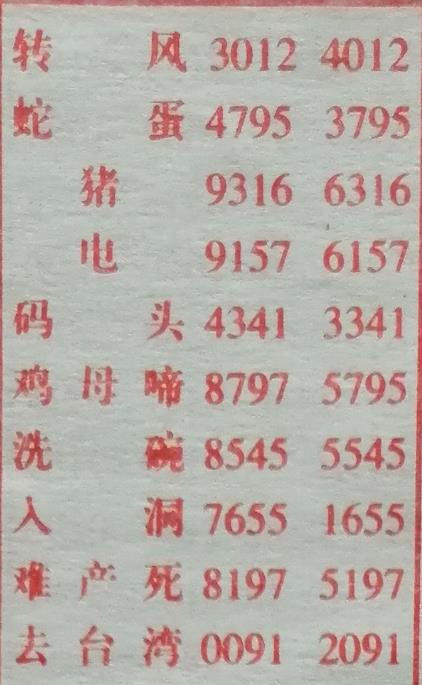 转风 3012 4012
蛇蛋 4795 3795
猪 9316 6316
电 9157 6157
码头 4341 3341
鸡母啼 8797 5795
洗碗 8545 5545
入洞 7655 1655
难产死 8197 5197
去台湾 0091 2091